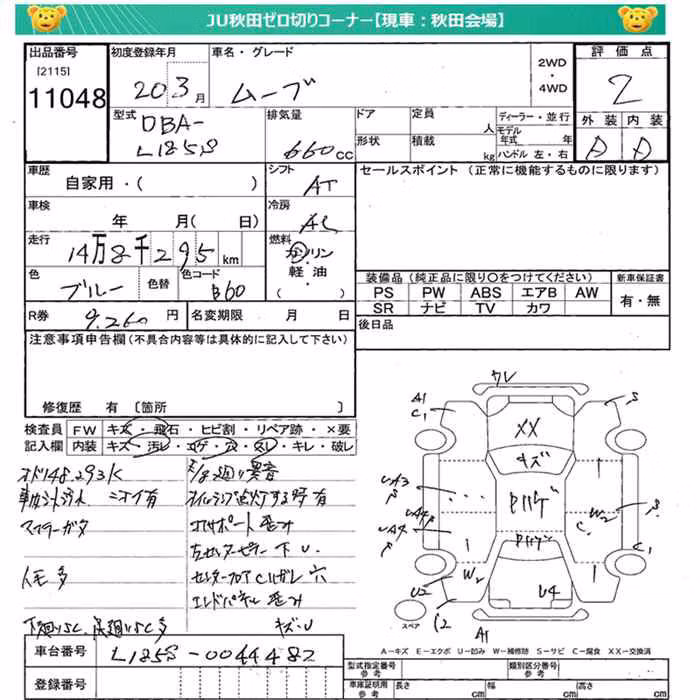 JU秋田ゼロ切りコーナー【現車：秋田会場】
出品番号
[2115]
11048
初度登録年月
20 3月
車名・グレード
ムーブ
2WD
・
4WD
評価点
2
外装 内装
D D
型式
DBA-
L185S
排気量
660cc
ドア
定員
人
ディーラー・並行
モデル年式 年
形状
積載
kg
ハンドル 左・右
車歴
自家用・( )
シフト
AT
セールスポイント (正常に機能するものに限ります)
車検
年 月(日)
冷房
AC
走行
14万8千295km
燃料
ガソリン
軽油
( )
色
ブルー
色替
色コード
B60
装備品 (純正品に限り○をつけてください)
新車保証書
PS PW ABS エアB AW
SR ナビ TV カワ
有・無
R券
9,260円
名変期限 月 日
後日品
注意事項申告欄(不具合内容等は具体的に記入して下さい)
修復歴 有 〔箇所 〕
検査員
記入欄
FW キズ・飛石・ヒビ割・リペア跡・×要
内装 キズ・汚レ・コゲ・穴・スレ・キレ・破レ
オド148,293K
ニオイ有
マフラーガタ
異音
コアサポート歪み
センターフロア
エンドパネル歪み
キズ・U
車台番号
L185S-0044482
登録番号
ワレ
A1
C1
S
XX
キズ
UA3
UA4
Pハゲ
Pハゲ
W2
C
C1
U2
W2
U4
A1
スペア
A－キズ E－エクボ U－凹み W－補修跡 S－サビ C－腐食 XX－交換済
型式指定番号
参考
類別区分番号
参考
車庫証明用
参考
長さ
cm
幅
cm
高さ
cm